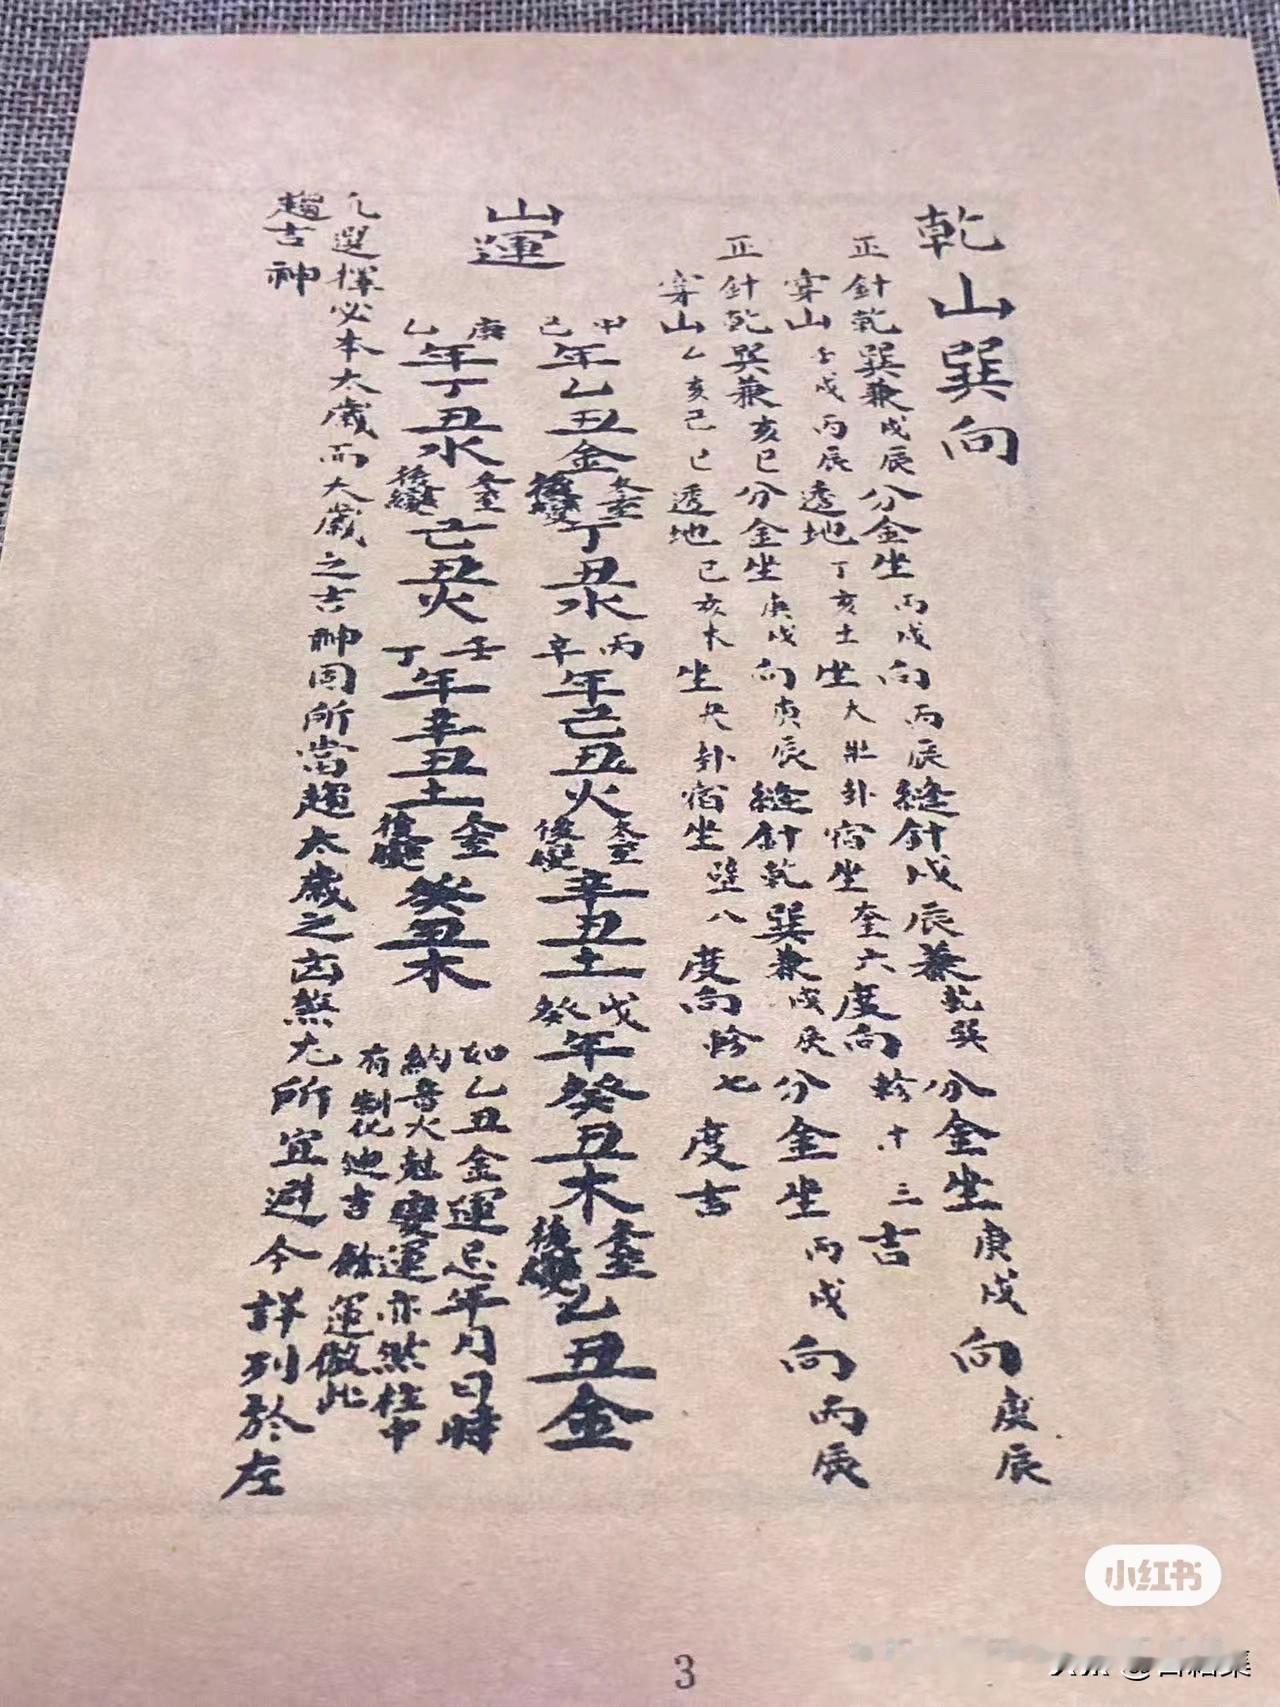 乾山巽向
正針乾巽兼戌辰分金坐丙戌向丙辰縫針戌辰兼乾巽分金坐庚戌向庚辰
穿山壬戌丙辰透地丁亥土坐大壯卦宿坐奎六度向軫十三吉
正針乾巽兼亥巳分金坐庚戌向庚辰縫針乾巽兼戌辰分金坐丙戌向丙辰
穿山乙亥己巳透地己亥木坐兌卦宿坐壁八度向軫七度吉
山運
甲己年乙丑金冬至後變丁丑水丙辛年己丑火冬至後變辛丑土戊癸年癸丑木冬至後變乙丑金
乙庚年丁丑水冬至後變己丑火丁壬年辛丑土冬至後變癸丑木
如乙丑金運忌年月日時
納音火尅變運亦然柱中
有制化迪吉餘運倣此
凡選擇必本太歲而太歲之吉神固所當趨太歲之凶煞尤所宜避今詳列於左
趨吉神
小红书
3